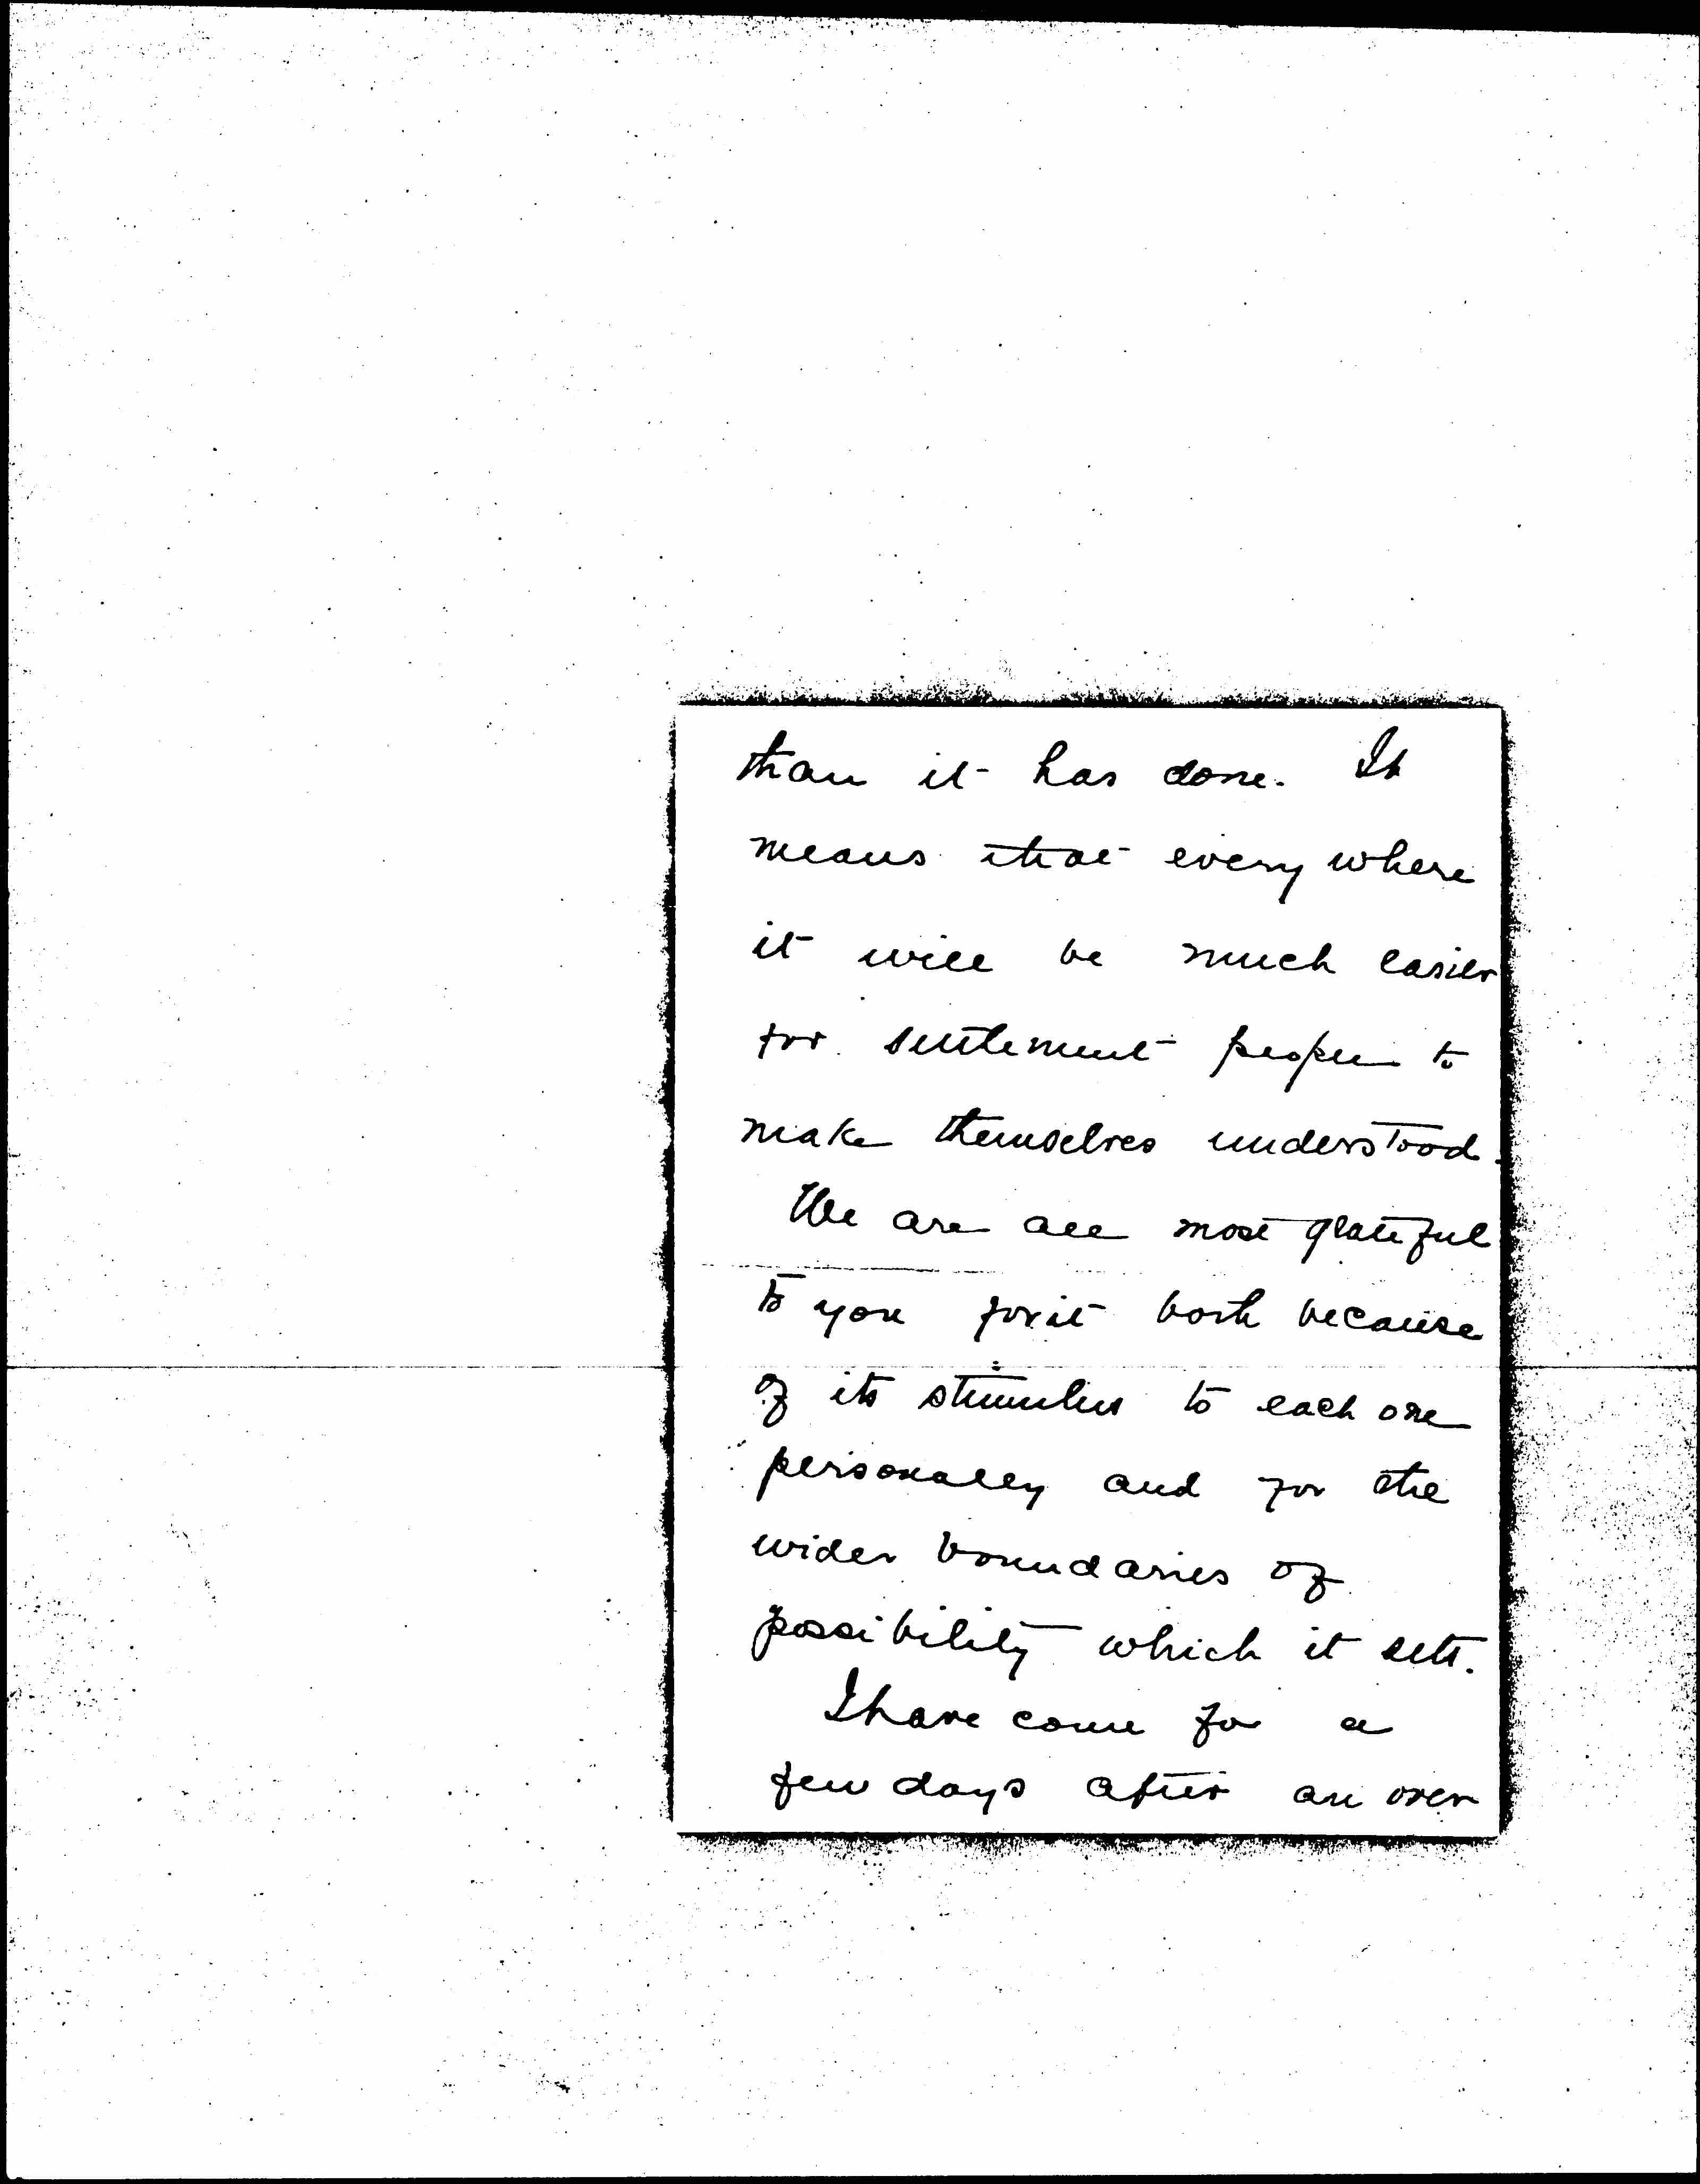 than it has done. It
means that every where
it will be much easier
for settlement people to
make themselves understood.
We are all most grateful
to you for it both because
of its stimulus to each one
personally and for the
wider boundaries of
possibility which it sets.
I have come for a
few days after an over